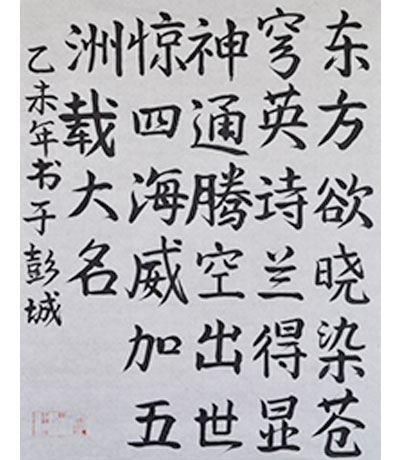 东方欲晓染苍
穹英诗兰得显
神通腾空出世
惊四海威加五
洲载大名
乙未年书于彭城